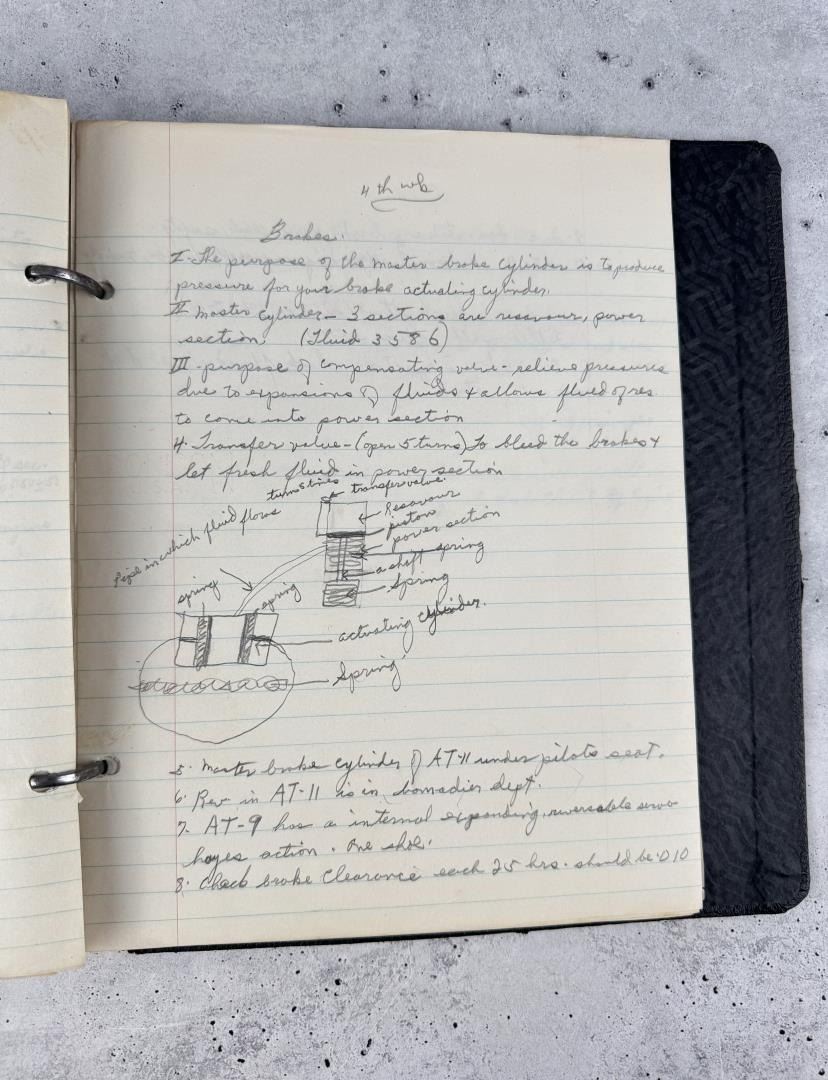 4 th wk
Brakes.
I. The purpose of the master brake cylinder is to produce
pressure for your brake actuating cylinder.
II master cylinder - 3 sections are resavour, power
section. (Fluid 3586)
III - purpose of compensating valve - relieve pressures
due to expansions of fluids & allows fluid of res.
to come into power section
4. Transfer valve - (open 5 turns) To bleed the brakes &
let fresh fluid in power section
turns 5 times
transfer valve.
Resavour
piston
power section
Pipe in which fluid flows
shaft spring
spring
spring
Spring
actuating cylinder.
Spring
5. Master brake cylinder of AT-11 under pilots seat.
6. Rev in AT-11 is in bomadier dept.
7. AT-9 has a internal expanding, reversable servo
hayes action. One shoe.
8. Check brake clearance each 25 hrs. should be .010